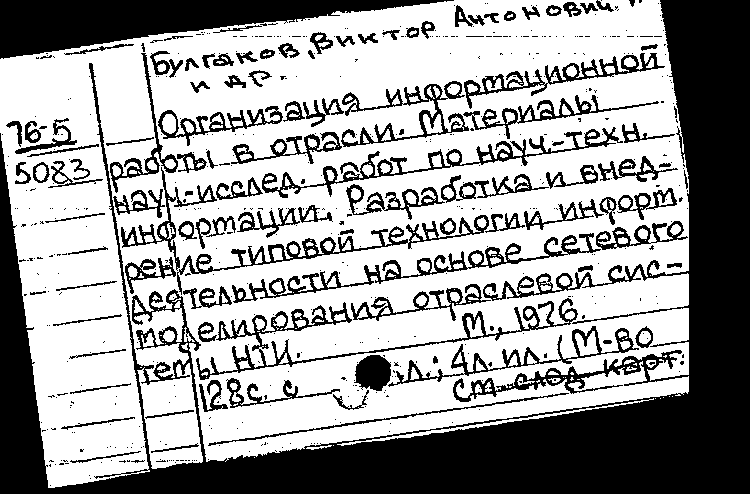 Булгаков, Виктор Антонович
и др.
Организация информационной
76-5
работы в отрасли. Материалы
5083
науч.-исслед. работ по науч.-техн.
информации. Разработка и внед-
рение типовой технологии информ.
деятельности на основе сетевого
моделирования отраслевой сис-
темы НТИ.
М., 1976.
128с. с л.; 4л. ил. (М-во
См. след. карт.